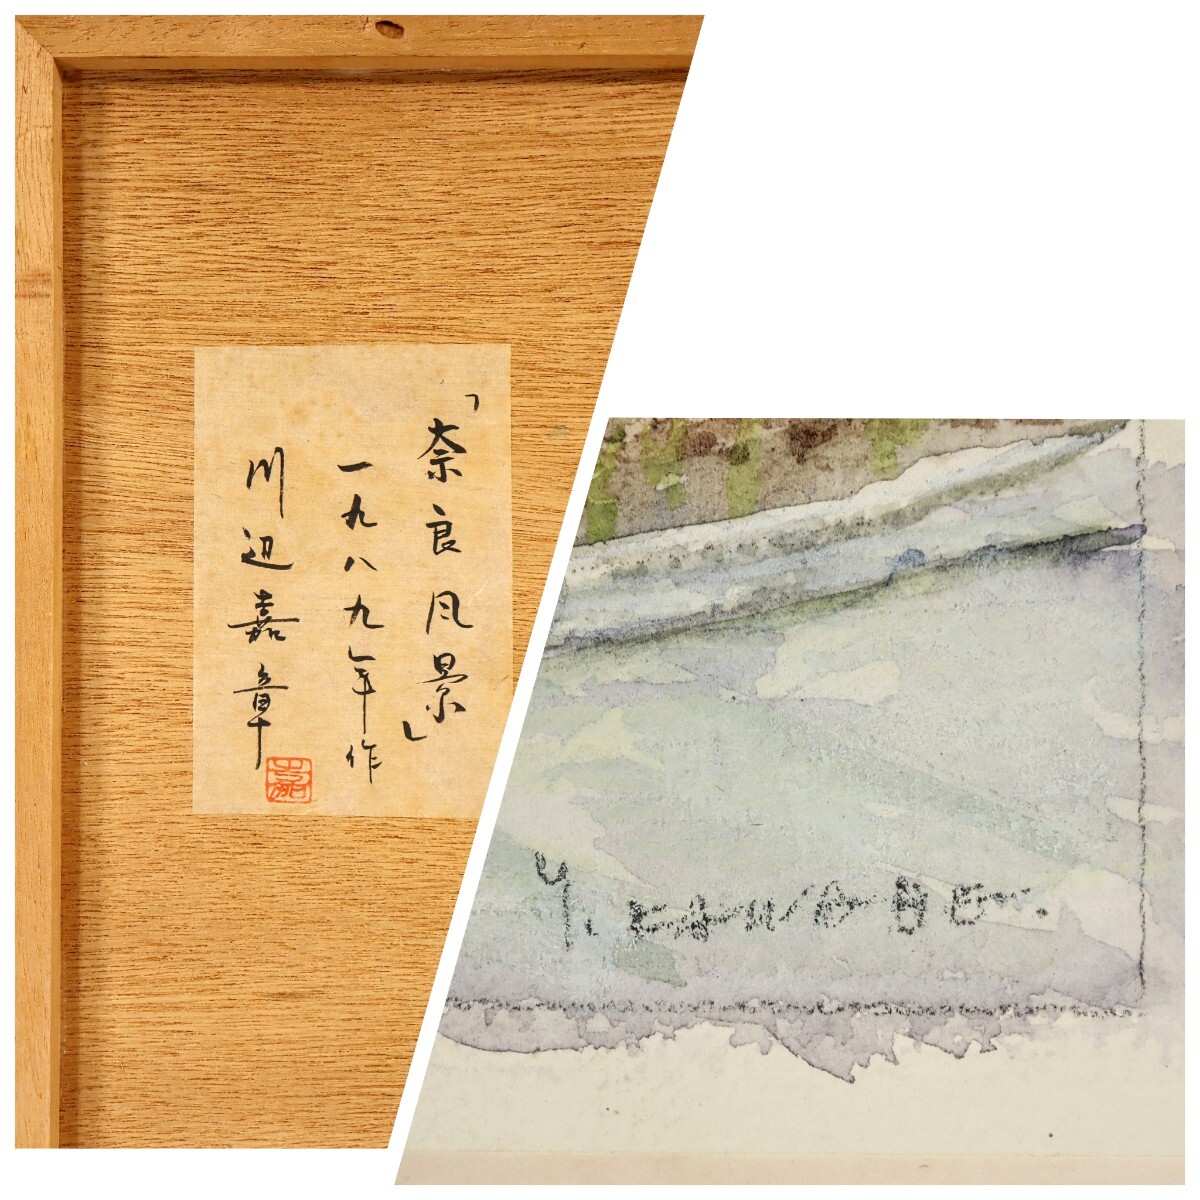 「奈良風景」
一九八九年作
川辺嘉章
嘉
Y. KAWABE.